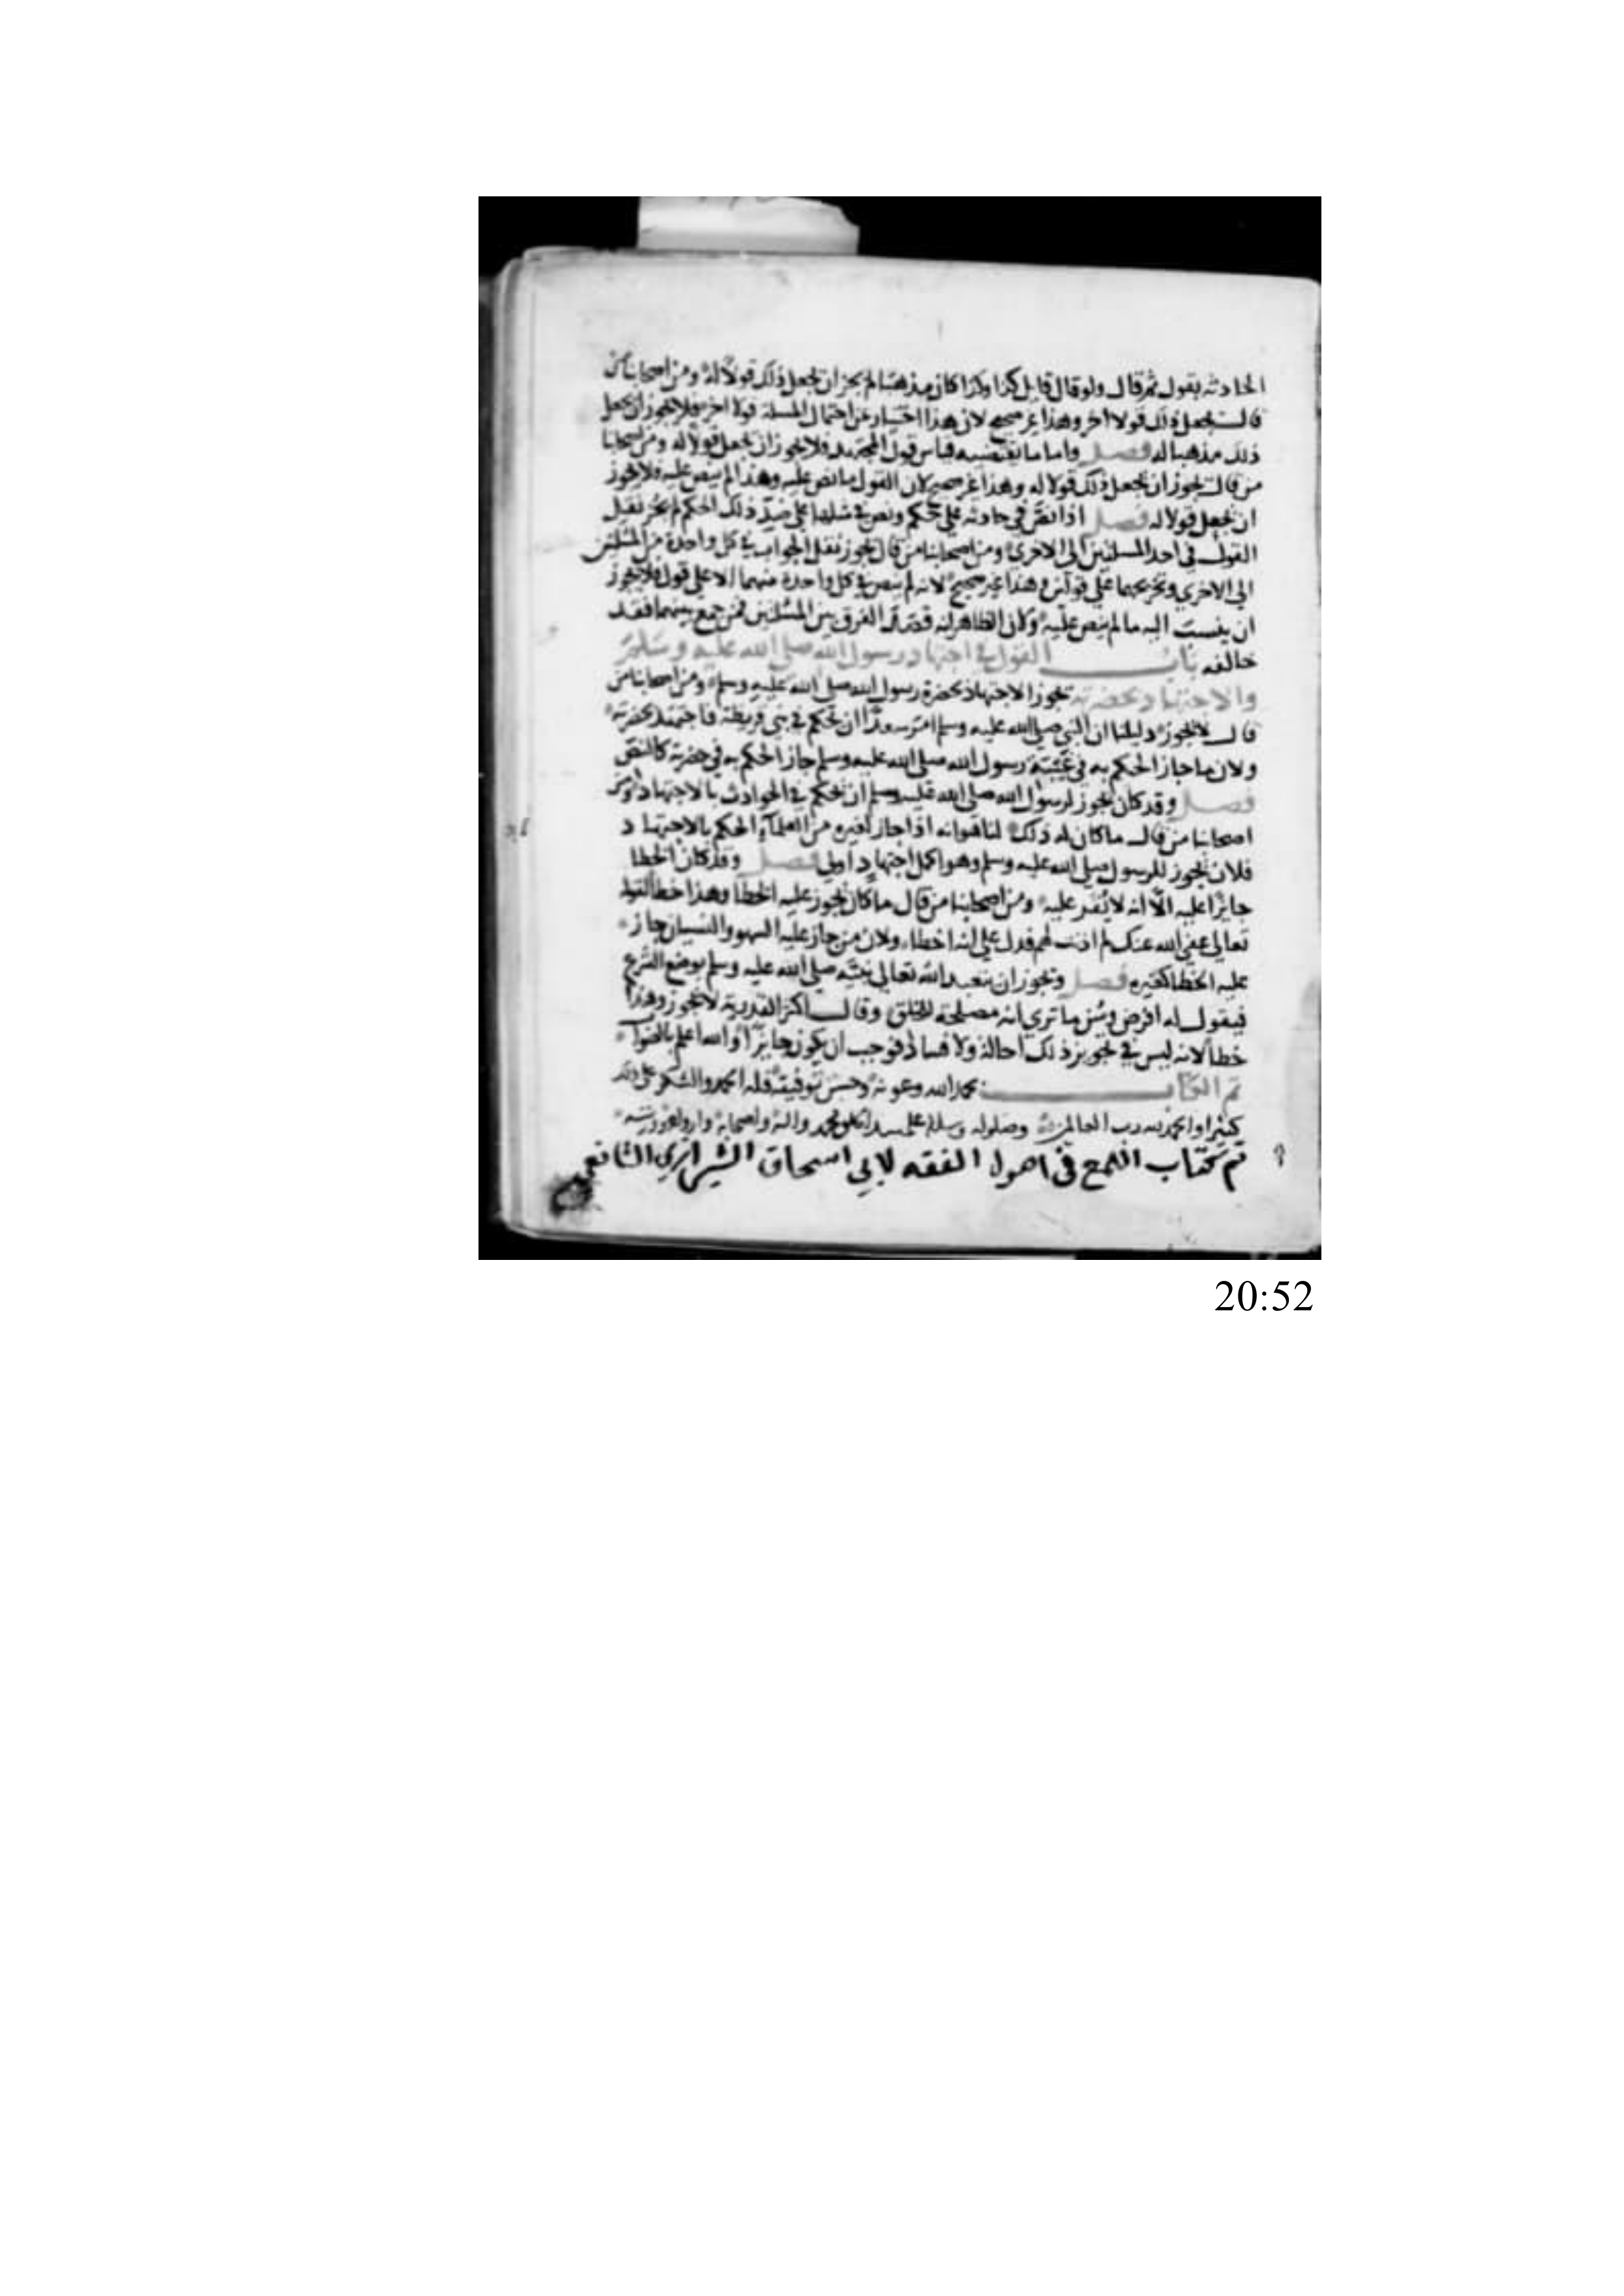 الحادثه بقول ثم قال ولو قال قايل كذا وكذا كان مذهبا لم يجز ان يجعل ذلك قولا له ومن اصحابنا من
قال يجعل ذلك قولا اخر وهذا غير صحيح لان هذا اخبار عن احتمال المسلة قولا اخر فلا يجوز ان يجعل
ذلك مذهبا له فصل واما ما يقتضيه قياس قول المجتهد فلا يجوز ان يجعل قولا له ومن اصحابنا
من قال يجوز ان يجعل ذلك قولا له وهذا غير صحيح لان القول ما نص عليه وهذا لم ينص عليه فلا يجوز
ان يجعل قولا له فصل اذا نص في حادثه على حكم ونص في مثلها على ضد ذلك الحكم لم يجز نقل
القول في احد المسلتين الى الاخرى ومن اصحابنا من قال يجوز نقل الجواب في كل واحدة من المسلتين
الى الاخرى وتخريجهما على قولين وهذا غير صحيح لانه لم ينص في كل واحدة منهما الا على قول فلا يجوز
ان ينسب اليه ما لم ينص عليه ولان الظاهر انه قصد الفرق بين المسلتين فمن جمع بينهما فقد
خالفه باب القول في اجتهاد رسول الله صلى الله عليه وسلم
والاجتهاد بحضرته يجوز الاجتهاد بحضرة رسول الله صلى الله عليه وسلم ومن اصحابنا من
قال لا يجوز دليلنا ان النبي صلى الله عليه وسلم امر سعدا ان يحكم في بني قريظة فاجتهد بحضرته
ولان ما جاز الحكم به في غيبة رسول الله صلى الله عليه وسلم جاز الحكم به في حضرته كالنص
فصل وقد كان يجوز لرسول الله صلى الله عليه وسلم ان يحكم في الحوادث بالاجتهاد ومن
اصحابنا من قال ما كان له ذلك لنا هو انه اذا جاز لغيره من العلماء الحكم بالاجتهاد
فلان يجوز للرسول صلى الله عليه وسلم وهو اكمل اجتهاد اولى فصل وقد كان الخطا
جايزا عليه الا انه لا يقر عليه ومن اصحابنا من قال ما كان يجوز عليه الخطا وهذا خطا لقوله
تعالى عفى الله عنك لم اذنت لهم فدل على انه اخطا ولان من جاز عليه السهو والنسيان جاز
عليه الخطا كغيره فصل ويجوز ان يتعبد الله تعالى نبيه صلى الله عليه وسلم بوضع الشرع
فيقول له افرض وسن ما ترى انه مصلحة للخلق وقال اكثر القدرية لا يجوز وهذا
خطا لانه ليس في تجويز ذلك احالة ولا فساد فوجب ان يكون جايزا والله اعلم بالصواب
تم الكتاب بحمد الله وعونه وحسن توفيقه فله الحمد والشكر على ذلك
كثيرا والحمد لله رب العالمين وصلواته وسلامه على سيد الخلق محمد واله واصحابه وازواجه وذريته
تم كتاب اللمع في اصول الفقه لابي اسحاق الشيرازي الشافعي
20:52